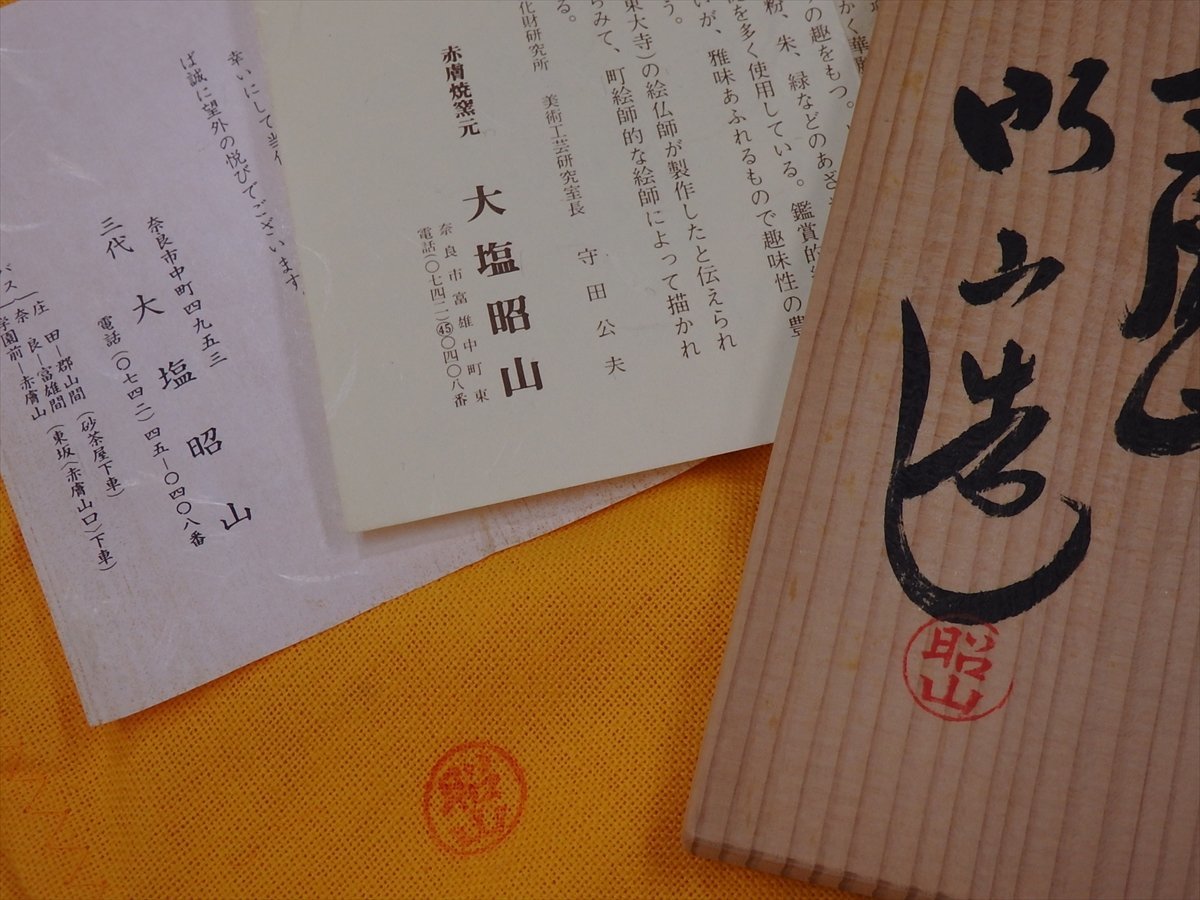 幸いにして当
ば誠に望外の悦びでございます
奈良市中町四九五三
三代 大塩昭山
電話(〇七四二)四五ー〇四〇八番
バス
庄田ー郡山間(砂茶屋下車)
奈良ー富雄間(東坂(赤膚山口)下車)
学園前ー赤膚山
かく華
の趣をもつ。
粉、朱、緑などのあざ
を多く使用している。鑑賞的
いが、雅味あふれるもので趣味性の豊
う。
東大寺)の絵仏師が製作したと伝えられ
らみて、町絵師的な絵師によって描かれ
る。
化財研究所 美術工芸研究室長 守田公夫
赤膚焼窯元 大塩昭山
奈良市富雄中町東
電話(〇七四二)㊺〇四〇八番
昭山造
昭山
昭山